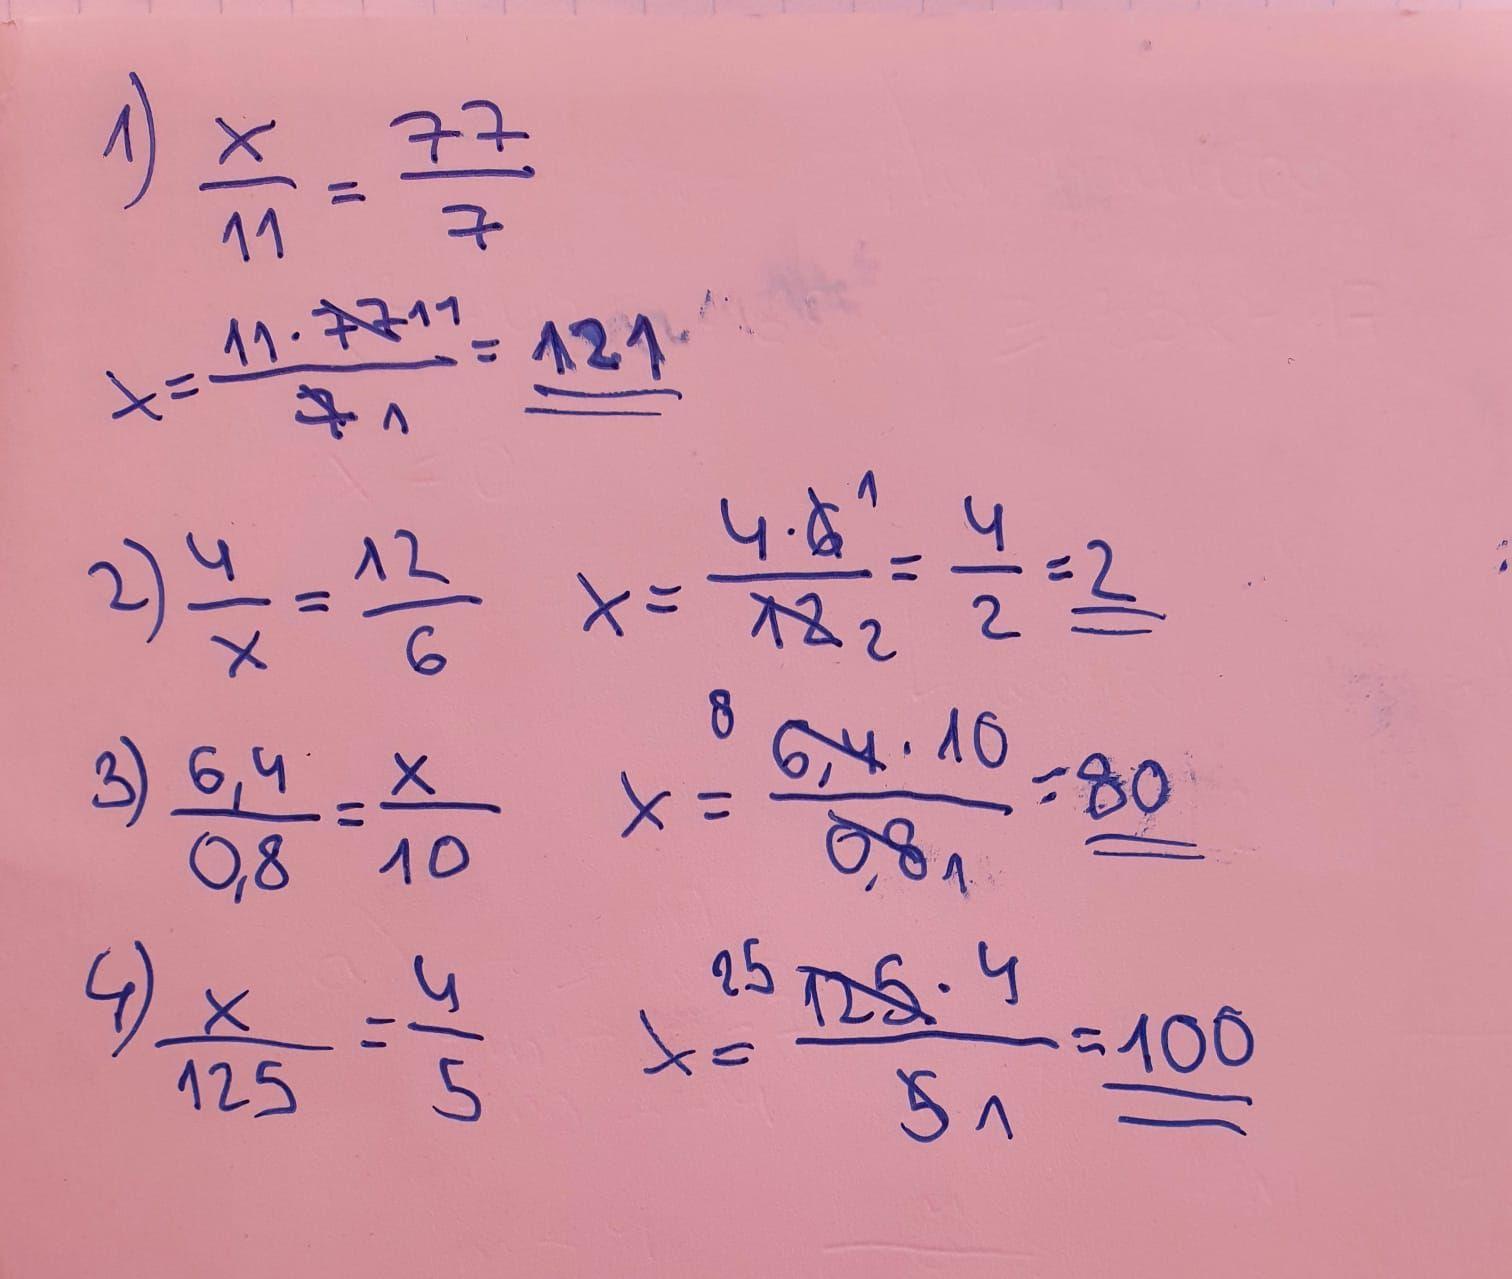 1) x/11 = 77/7
x = 11·77 11/7 1 = 121
2) 4/x = 12/6 x = 4·6 1/12 2 = 4/2 = 2
3) 6,4/0,8 = x/10 x = 8 6,4·10/0,8 1 = 80
4) x/125 = 4/5 x = 25 125·4/5 1 = 100